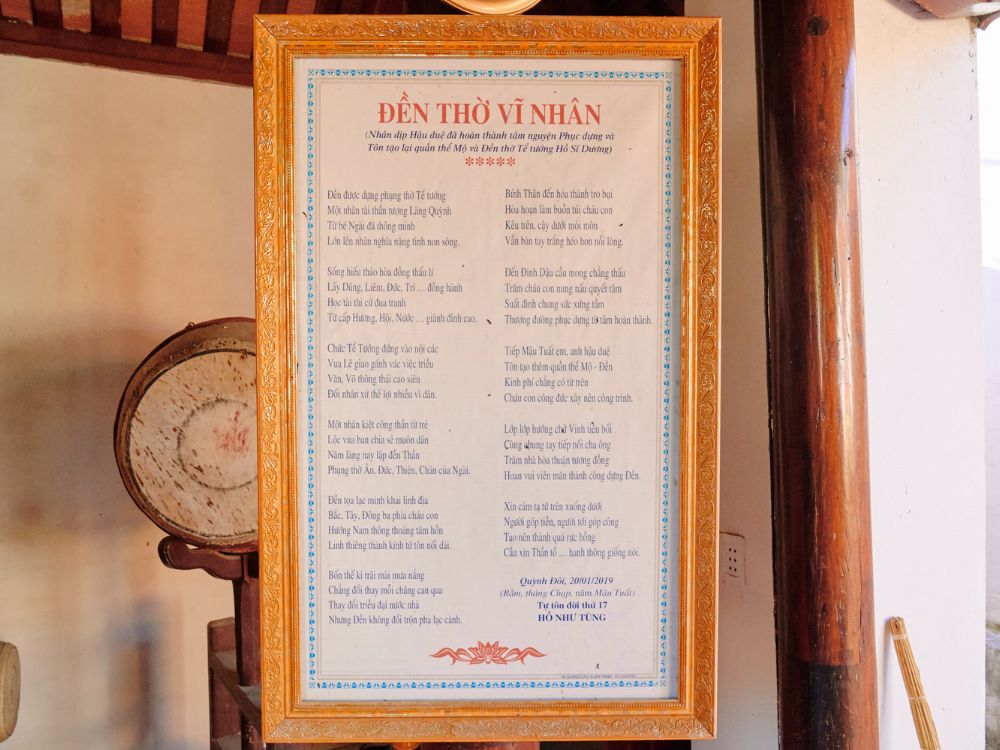 ĐỀN THỜ VĨ NHÂN
(Nhân dịp Hậu duệ đã hoàn thành tâm nguyện Phục dựng và
Tôn tạo lại quần thể Mộ và Đền thờ Tể tướng Hồ Sĩ Dương)
*****
Đền được dựng phụng thờ Tể tướng
Một nhân tài thần tượng Làng Quỳnh
Từ bé Ngài đã thông minh
Lớn lên nhân nghĩa nặng tình non sông.
Sống hiếu thảo hòa đồng thấu lí
Lấy Dũng, Liêm, Đức, Trí ... đồng hành
Học tài thi cử đua tranh
Từ cấp Hương, Hội, Nước ... giành đỉnh cao.
Chức Tể Tướng đứng vào nội các
Vua Lê giao gánh vác việc triều
Văn, Võ thông thái cao siêu
Đối nhân xử thế lợi nhiều vì dân.
Một nhân kiệt công thần từ trẻ
Lộc vua ban chia sẻ muôn dân
Năm làng nay lập đền Thần
Phụng thờ Ân, Đức, Thiện, Chân của Ngài.
Đền tọa lạc minh khai linh địa
Bắc, Tây, Đông ba phía cháu con
Hướng Nam thông thoáng tâm hồn
Linh thiêng thành kính từ tôn nối dài.
Bốn thế kỉ trải mài mưa nắng
Chẳng đổi thay mỗi chặng can qua
Thay đổi triều đại nước nhà
Nhưng Đền không đổi trộn pha lạc cảnh.
Bính Thân đến hóa thành tro bụi
Hỏa hoạn làm buồn tủi cháu con
Kêu trên, cậy dưới mỏi mòn
Vẫn bàn tay trắng héo hon nỗi lòng.
Đến Đinh Dậu cầu mong chẳng thấu
Trăm cháu con nung nấu quyết tâm
Suất đinh chung sức xứng tầm
Thượng đường phục dựng từ tâm hoàn thành.
Tiếp Mậu Tuất em, anh hậu duệ
Tôn tạo thêm quần thể Mộ - Đền
Kinh phí chẳng có từ trên
Cháu con công đức xây nên công trình.
Lớp lớp hướng chữ Vinh tiền bối
Cùng chung tay tiếp nối cha ông
Trăm nhà hòa thuận tương đồng
Hoan vui viên mãn thành công dựng Đền.
Xin cảm tạ từ trên xuống dưới
Người góp tiền, người tới góp công
Tạo nên thành quả rực hồng
Cầu xin Thần tổ ... hanh thông giống nòi.
Quỳnh Đôi, 20/01/2019
(Rằm, tháng Chạp, năm Mậu Tuất)
Tự tôn đời thứ 17
HỒ NHƯ TÙNG